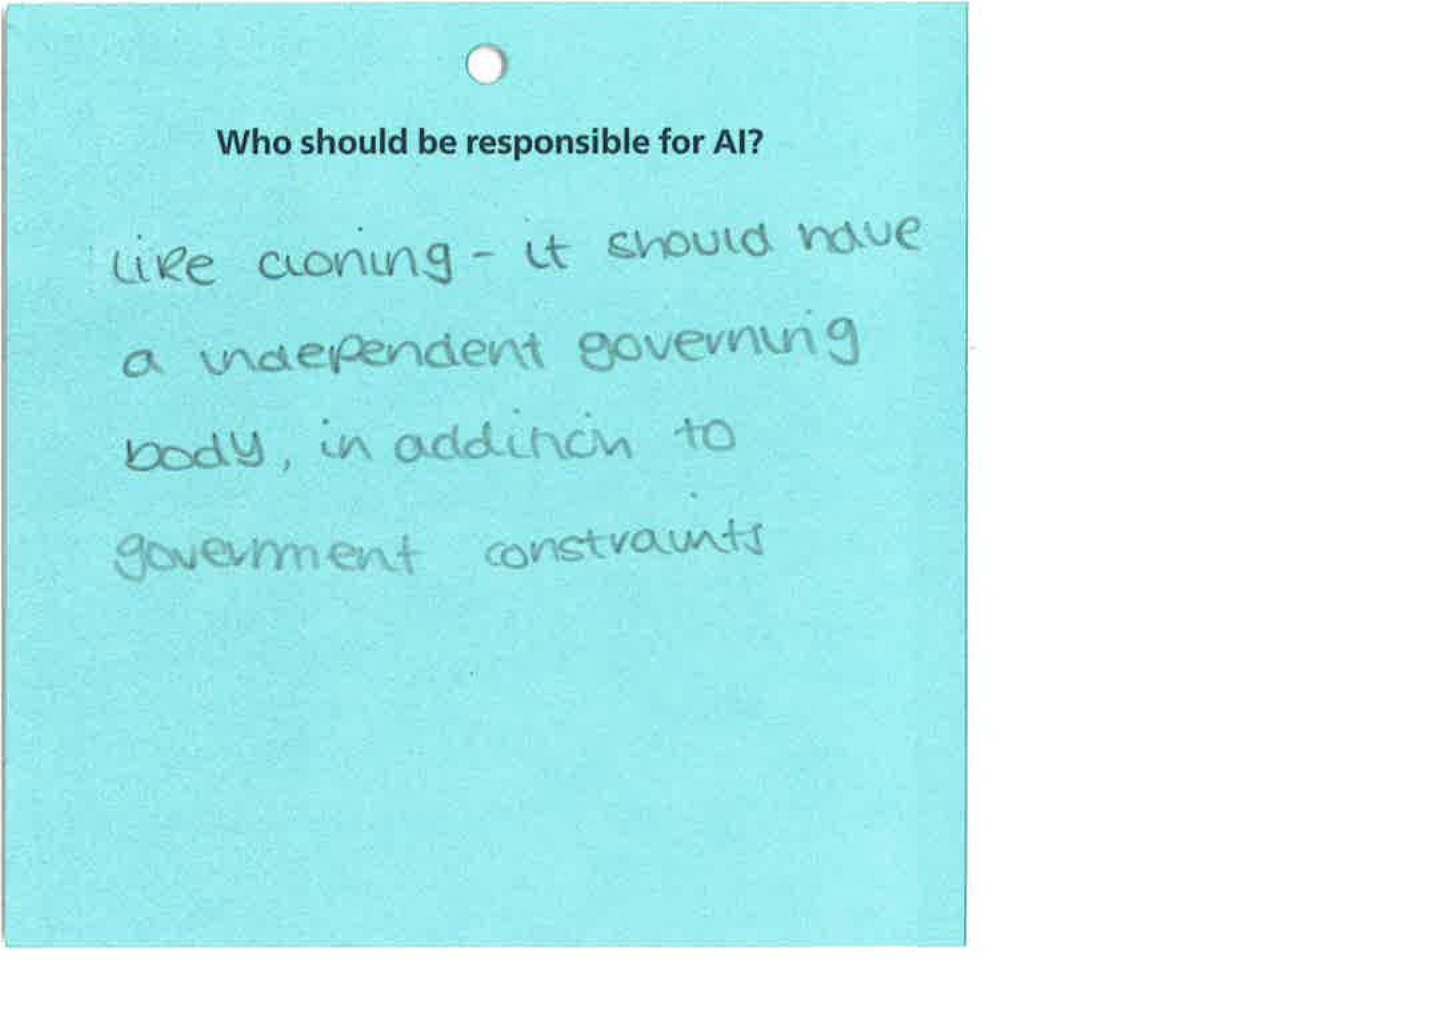 Who should be responsible for AI?
like cloning - it should have
a independent governing
body, in addition to
government constraints